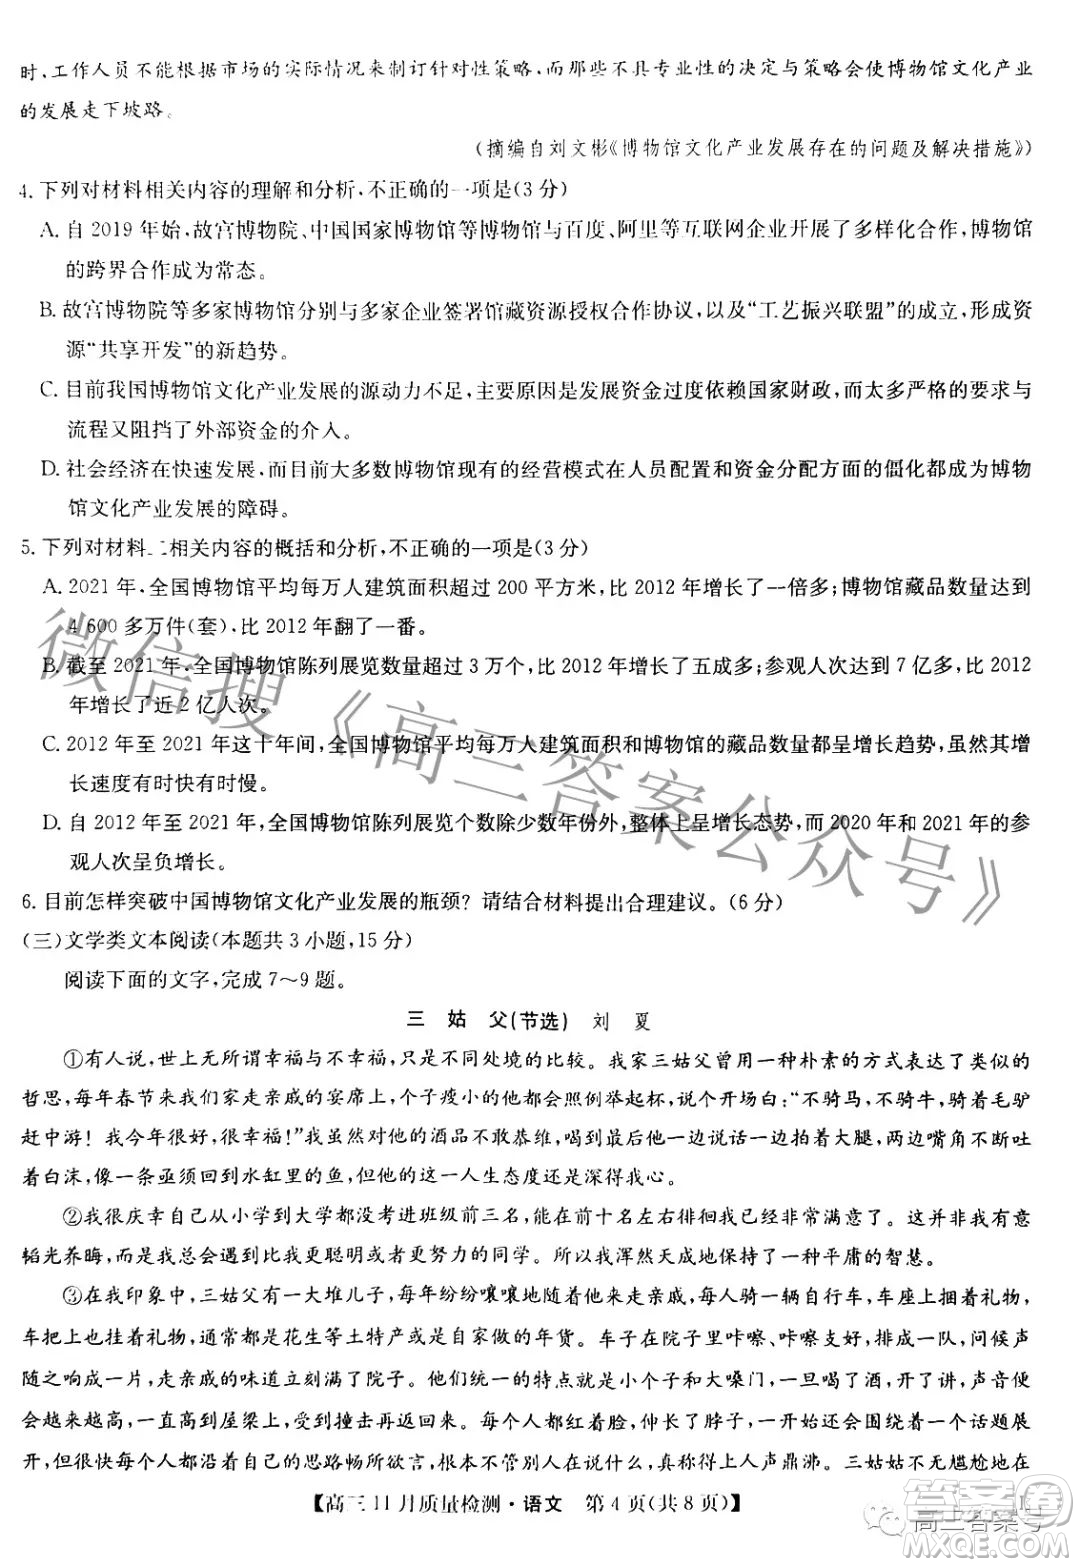 时,工作人员不能根据市场的实际情况来制订针对性策略,而那些不具专业性的决定与策略会使博物馆文化产业
的发展走下坡路。
(摘编自刘文彬《博物馆文化产业发展存在的问题及解决措施》)
4. 下列对材料相关内容的理解和分析,不正确的一项是(3 分)
A. 自 2019 年始,故宫博物院、中国国家博物馆等博物馆与百度、阿里等互联网企业开展了多样化合作,博物馆
的跨界合作成为常态。
B. 故宫博物院等多家博物馆分别与多家企业签署馆藏资源授权合作协议,以及“工艺振兴联盟”的成立,形成资
源“共享开发”的新趋势。
C. 目前我国博物馆文化产业发展的源动力不足,主要原因是发展资金过度依赖国家财政,而太多严格的要求与
流程又阻挡了外部资金的介入。
D. 社会经济在快速发展,而目前大多数博物馆现有的经营模式在人员配置和资金分配方面的僵化都成为博物
馆文化产业发展的障碍。
5. 下列对材料二相关内容的概括和分析,不正确的一项是(3 分)
A. 2021 年,全国博物馆平均每万人建筑面积超过 200 平方米,比 2012 年增长了一倍多;博物馆藏品数量达到
4 600 多万件(套),比 2012 年翻了一番。
B. 截至 2021 年,全国博物馆陈列展览数量超过 3 万个,比 2012 年增长了五成多;参观人次达到 7 亿多,比 2012
年增长了近 2 亿人次。
C. 2012 年至 2021 年这十年间,全国博物馆平均每万人建筑面积和博物馆的藏品数量都呈增长趋势,虽然其增
长速度有时快有时慢。
D. 自 2012 年至 2021 年,全国博物馆陈列展览个数除少数年份外,整体上呈增长态势,而 2020 年和 2021 年的参
观人次呈负增长。
6. 目前怎样突破中国博物馆文化产业发展的瓶颈?请结合材料提出合理建议。(6 分)
(三)文学类文本阅读(本题共 3 小题,15 分)
阅读下面的文字,完成 7～9 题。
三 姑 父(节选) 刘 夏
①有人说,世上无所谓幸福与不幸福,只是不同处境的比较。我家三姑父曾用一种朴素的方式表达了类似的
哲思,每年春节来我们家走亲戚的宴席上,个子瘦小的他都会照例举起杯,说个开场白:“不骑马,不骑牛,骑着毛驴
赶中游!我今年很好,很幸福!”我虽然对他的酒品不敢恭维,因为最后他会一边说话一边拍着大腿,两边嘴角不断吐
着白沫,像一条亟须回到水缸里的鱼,但他的这一人生态度还是深得我心。
②我很庆幸自己从小学到大学都没考进班级前三名,能在前十名左右徘徊我已经非常满意了。这并非我有意
韬光养晦,我总会遇到比我更聪明或者更努力的同学。所以我浑然天成地保持着一种平庸的智慧。
③在我印象中,三姑父有一大堆儿子,每年纷纷嚷嚷地领着他们来走亲戚,每人骑一辆自行车,车座上捆着礼物,
车把上也挂着礼物,通常都是花生等土特产或是自家做的年货。车子在院子里咔嚓、咔嚓支好,排成一队,问候声
随之响成一片,走亲戚的味道立刻溢满了院子。他们统一的特点就是小个子和大嗓门,一旦喝了酒,吵闹起来,声音便
会越来越高,一直高到屋梁上,受到撞击再返回来。每个人都红着脸,伸长了脖子,一开始还会围绕着一个话题展
开,但很快每个人都沿着自己的思路畅所欲言,根本不管别人在说什么,真称得上人声鼎沸。三姑姑不无尴尬地在
【高三 11 月质量检测·语文 第 4 页(共 8 页)】
微信搜《高三答案公众号》
高三答案号
MXQE.COM